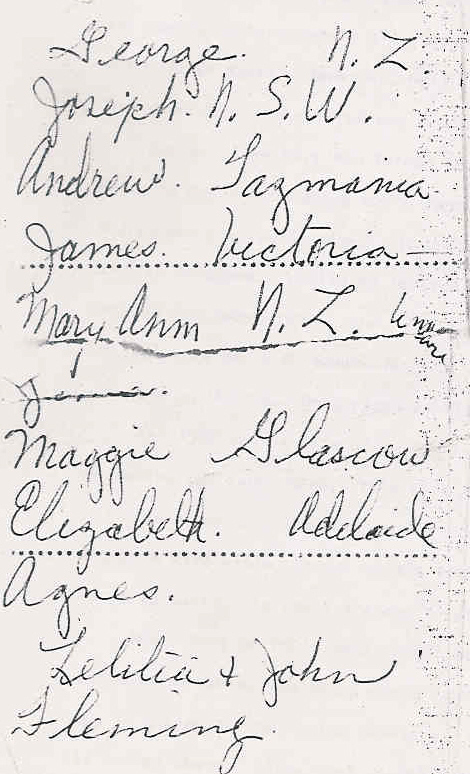 George. N. Z.
Joseph. N. S. W.
Andrew. Tazmania
James. Victoria
Mary Ann N. Z.
Maggie Glascow
Elizabeth. Adelaide
Agnes.
Letitia & John
Fleming.